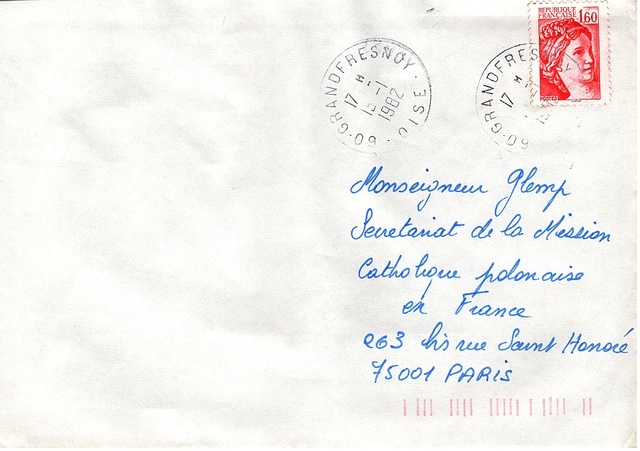 REPUBLIQUE FRANÇAISE 1,60
POSTES
60·GRANDFRESNOY·OISE
17 H
1982
60·GRANDFRESNOY
17 H
Monseigneur Glemp
Secretariat de la Mission
Catholique polonaise
en France
263 bis rue Saint Honoré
75001 PARIS